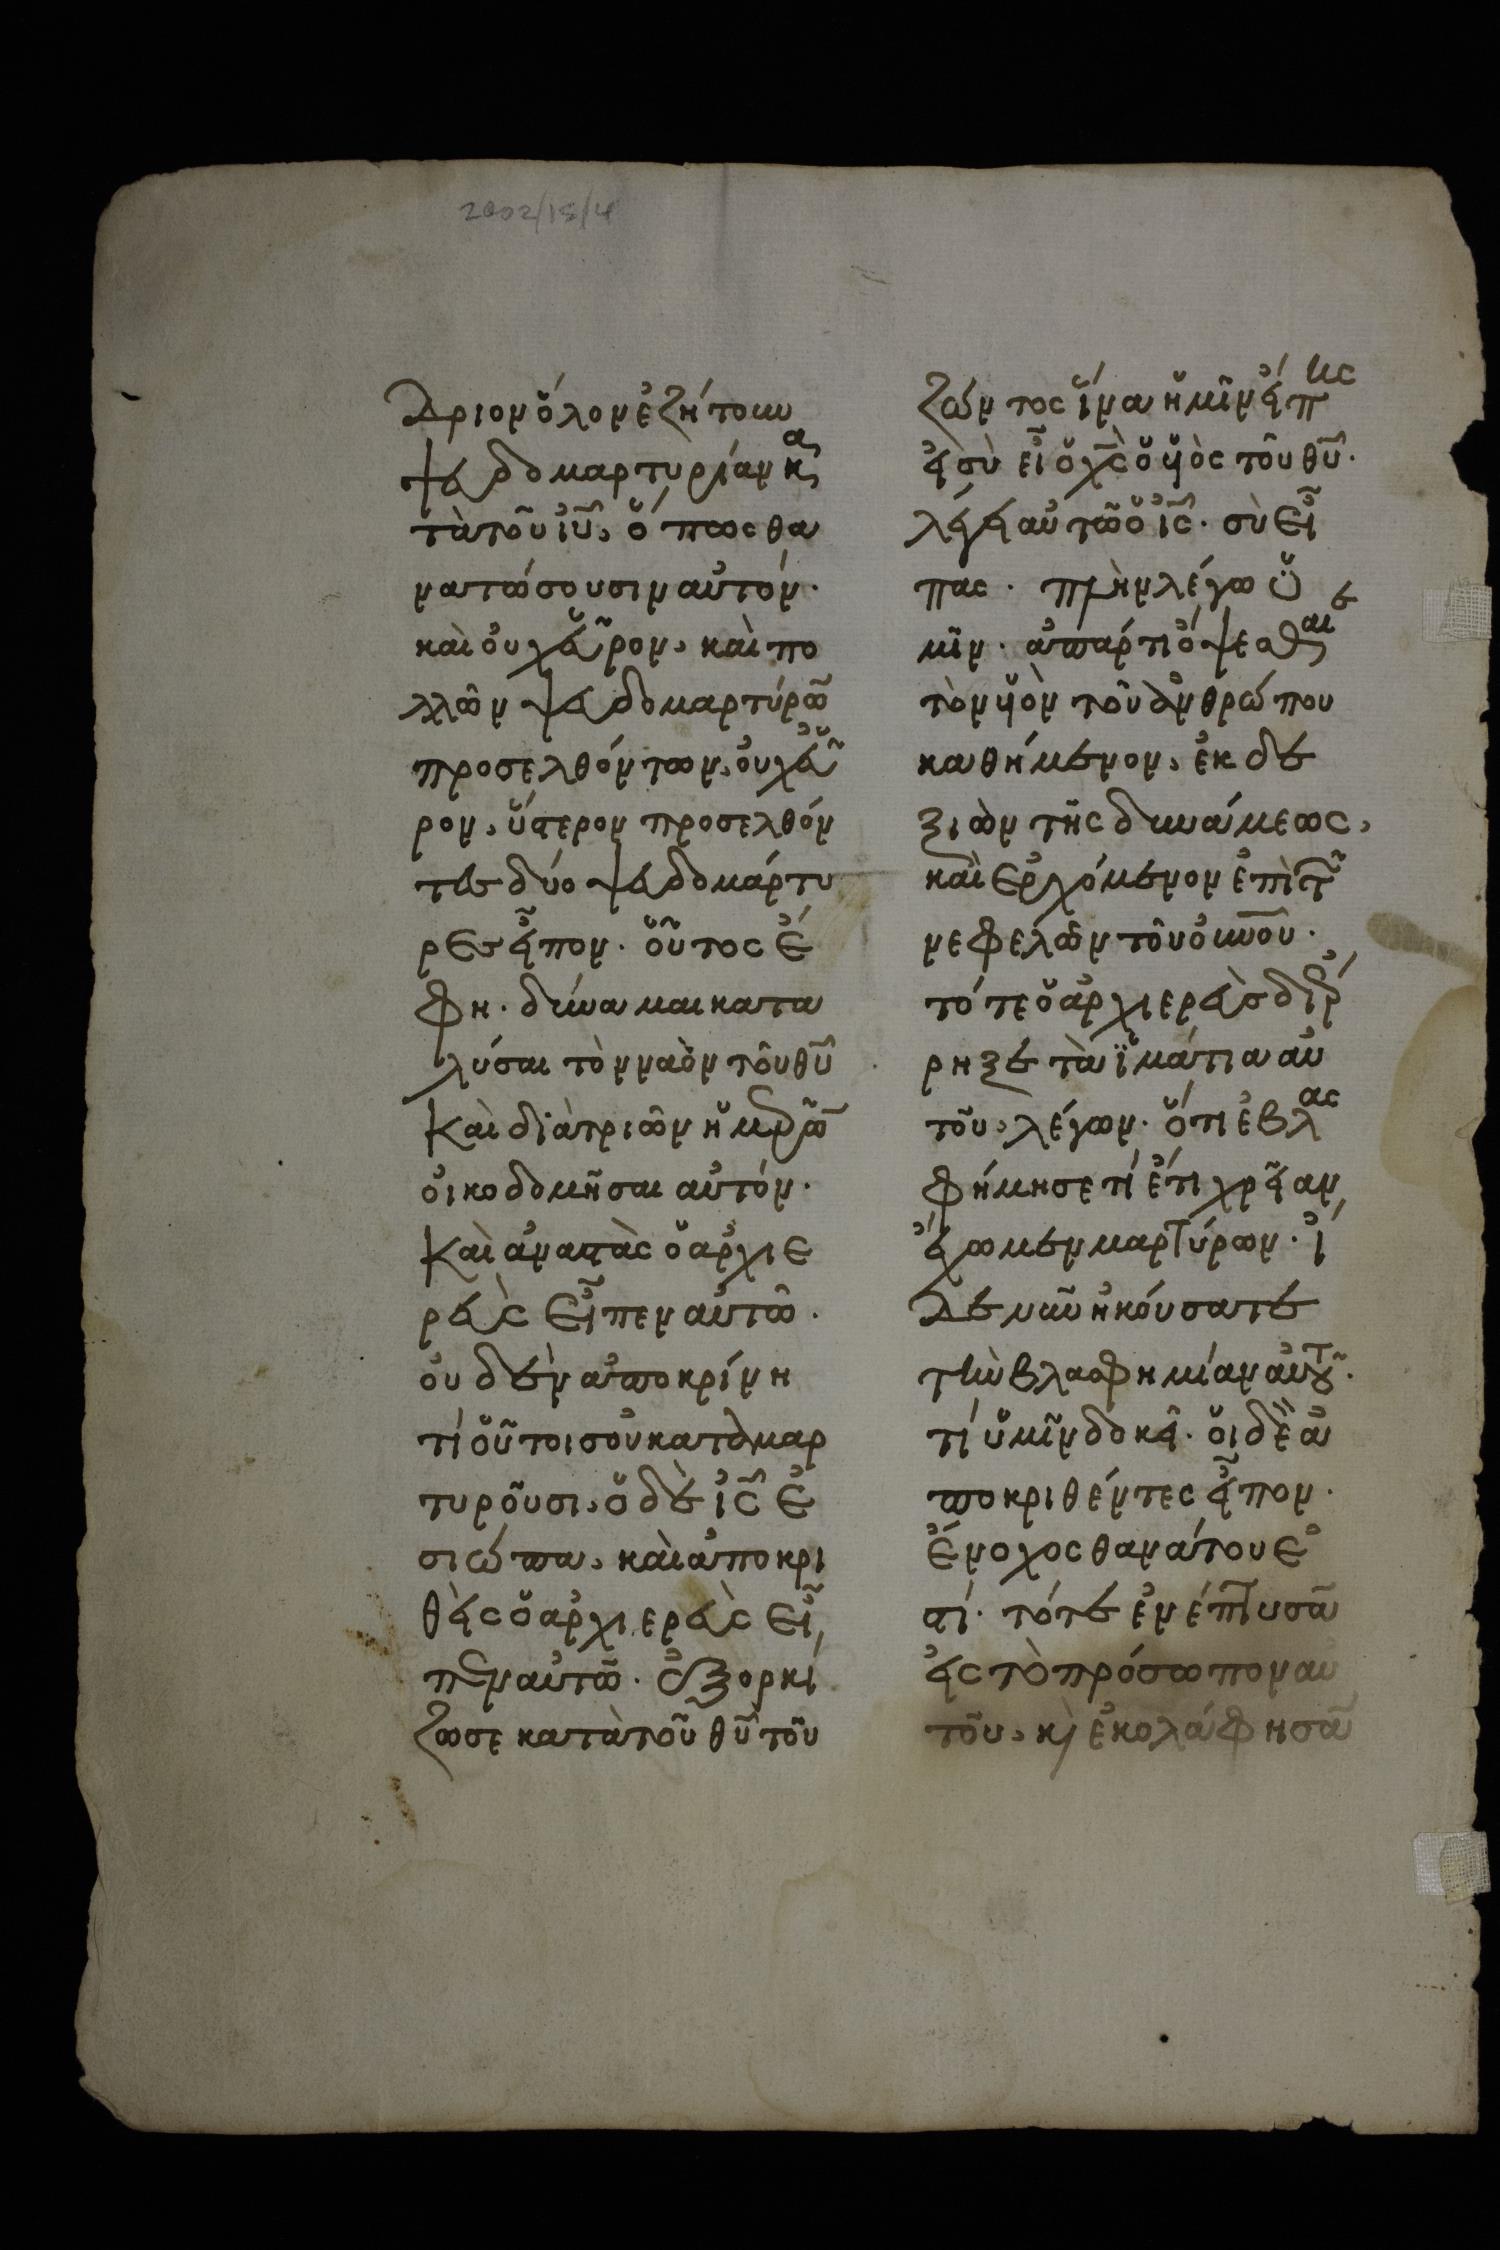 2002/15/4
δριον ὅλον ἐζήτουν
ψευδομαρτυρίαν κα
τὰ τοῦ ἰῦ, ὅπως θα
νατώσουσιν αὐτόν.
καὶ οὐχ εὗρον, καὶ πο
λλῶν ψευδομαρτύρω̅
προσελθόντων, οὐχ εὗ
ρον, ὕστερον προσελθόν
τες δύο ψευδομάρτυ
ρες εἶπον. οὗτος ἔ
φη. δύναμαι κατα
λύσαι τὸν ναὸν τοῦ θῦ
καὶ διὰ τριῶν ἡμερῶ̅
οἰκοδομῆσαι αὐτόν.
καὶ ἀναστὰς ὁ ἀρχιε
ρεὺς εἶπεν αὐτῶ.
οὐδὲν ἀποκρίνη
τί οὗτοι σοῦ καταμαρ
τυροῦσι, ὁ δὲ ἰς̅ ἐ
σιώπα, καὶ ἀποκρι
θεὶς ὁ ἀρχιερεὺς εἶ
πεν αὐτῶ. ἐξορκί
ζω σε κατὰ τοῦ θῦ τοῦ
ζῶντος ἵνα ἡμῖν εἴπῃς
εἰ σὺ εἶ ὁ χς̅ ὁ υἱὸς τοῦ θῦ.
λέγει αὐτῶ ὁ ἰς̅. σὺ εἶ
πας. πλὴν λέγω ὑ
μῖν. ἀπάρτι ὄψεσθαι
τὸν υἱὸν τοῦ ἀνθρώπου
καθήμενον, ἐκ δε
ξιῶν τῆς δυνάμεως,
καὶ ἐρχόμενον ἐπὶ τῶ̅
νεφελῶν τοῦ οὐνοῦ.
τότε ὁ ἀρχιερεὺς διέρ
ρηξε τὰ ἱμάτια αὐ
τοῦ, λέγων. ὅτι ἐβλας
φήμησε τί ἔτι χρείαν
ἔχωμεν μαρτύρων. ἴ
δε νῦν ἠκούσατε
τὴν βλασφημίαν αὐτοῦ.
τί ὑμῖν δοκεῖ. οἱ δὲ ἀ
ποκριθέντες εἶπον.
ἔνοχος θανάτου ἐ
στί. τότε ἐνέπτυσα̅
εἰς τὸ πρόσωπον αὐ
τοῦ, κὶ ἐκολάφησα̅